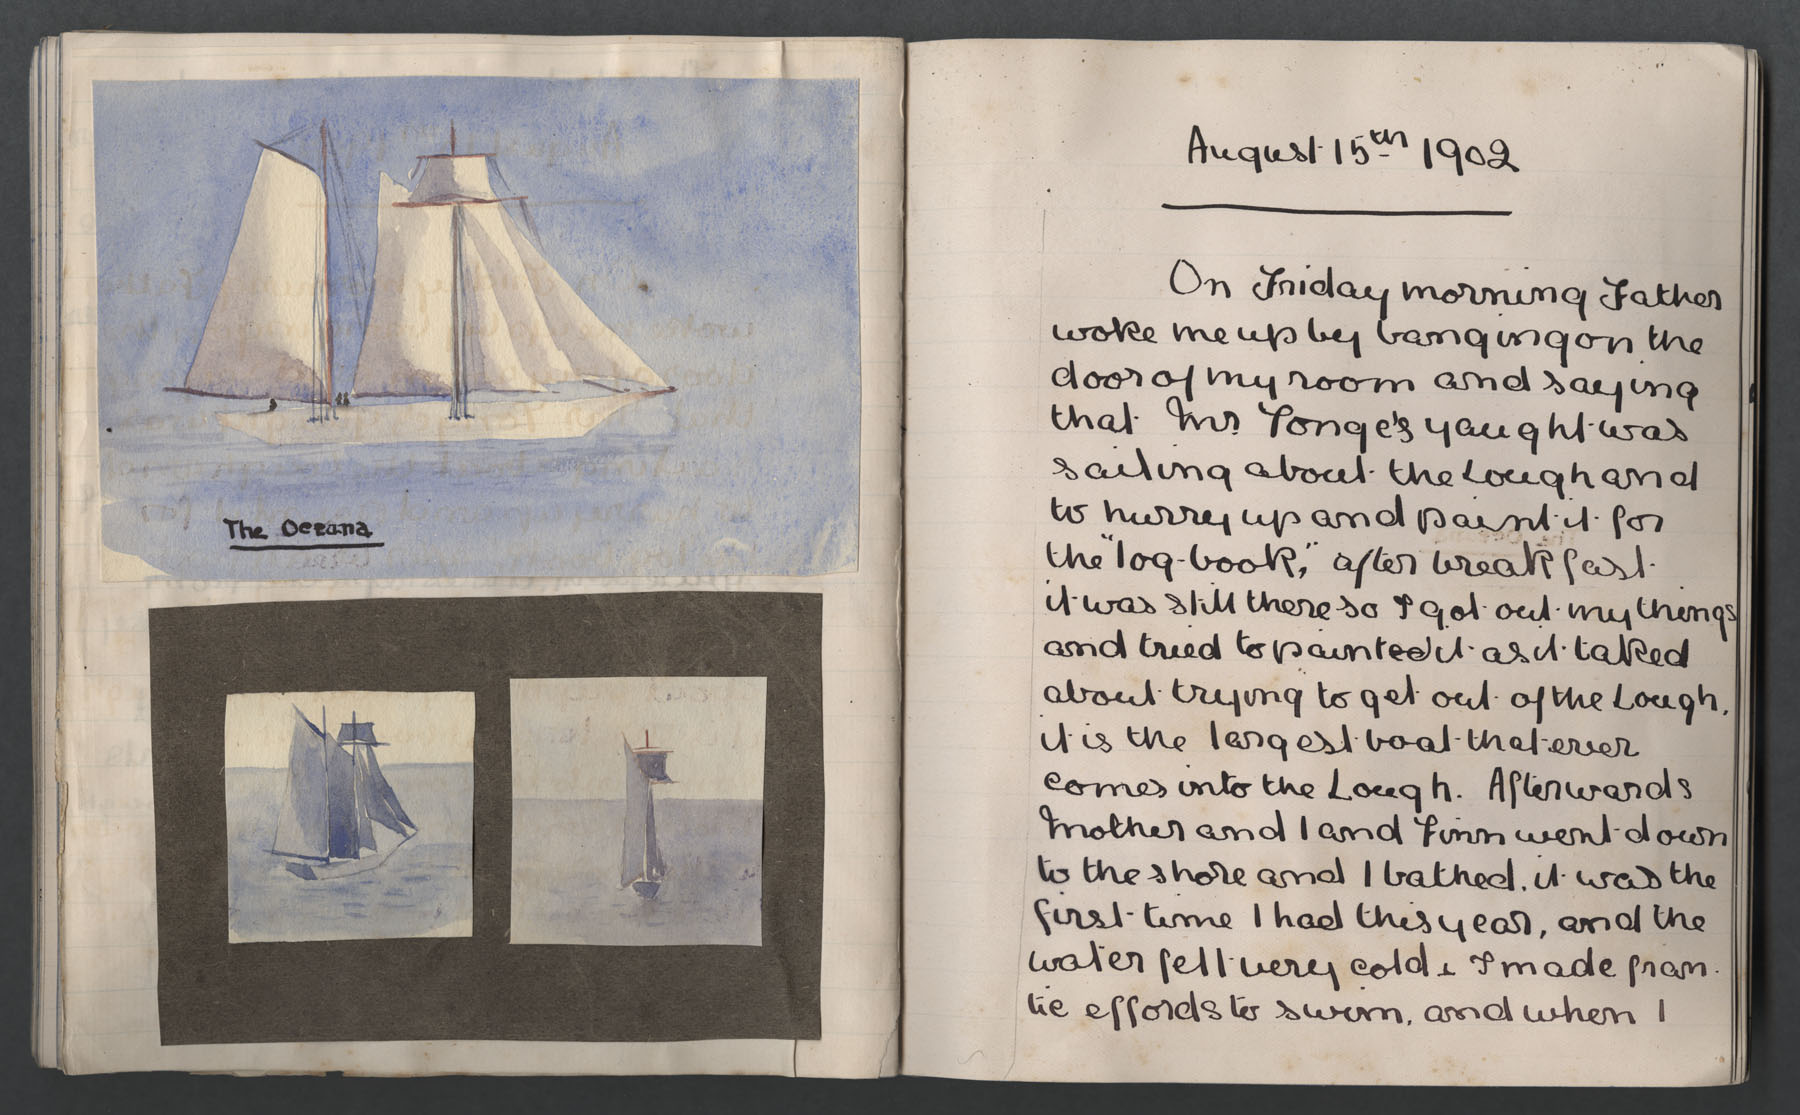 The Oceana
August 15th 1902
On Friday morning Father
woke me up by banging on the
door of my room and saying
that Mr Tonge's yaught was
sailing about the Lough and
to hurry up and paint it for
the "log-book," after breakfast
it was still there so I got out my things
and tried to painted it as it taked
about trying to get out of the Lough,
it is the largest boat that ever
comes into the Lough. Afterwards
Mother and I and Finn went down
to the shore and I bathed, it was the
first time I had this year, and the
water felt very cold & I made fran-
tic effords to swim, and when I